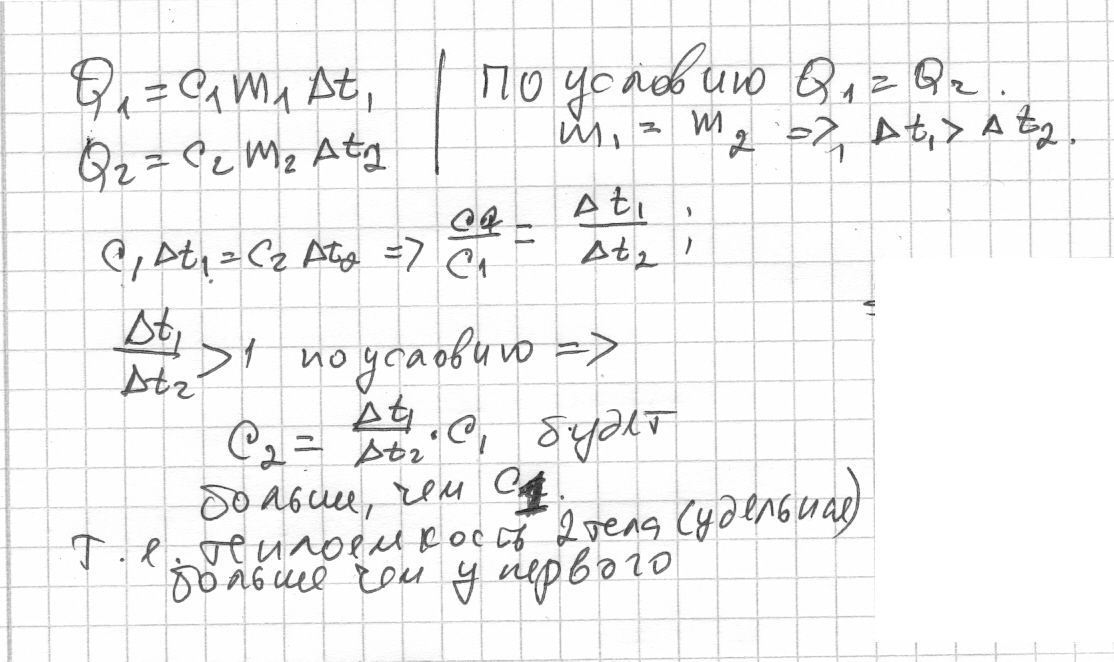 Q₁ = C₁ m₁ Δt₁ | По условию Q₁ = Q₂.
Q₂ = C₂ m₂ Δt₂ | m₁ = m₂ =>, Δt₁ > Δt₂.
C₁ Δt₁ = C₂ Δt₂ => C₂/C₁ = Δt₁/Δt₂ ;
Δt₁/Δt₂ > 1 по условию =>
C₂ = Δt₁/Δt₂ · C₁ будет
больше, чем C₁.
Т.е. теплоемкость 2 тела (удельная)
больше чем у первого